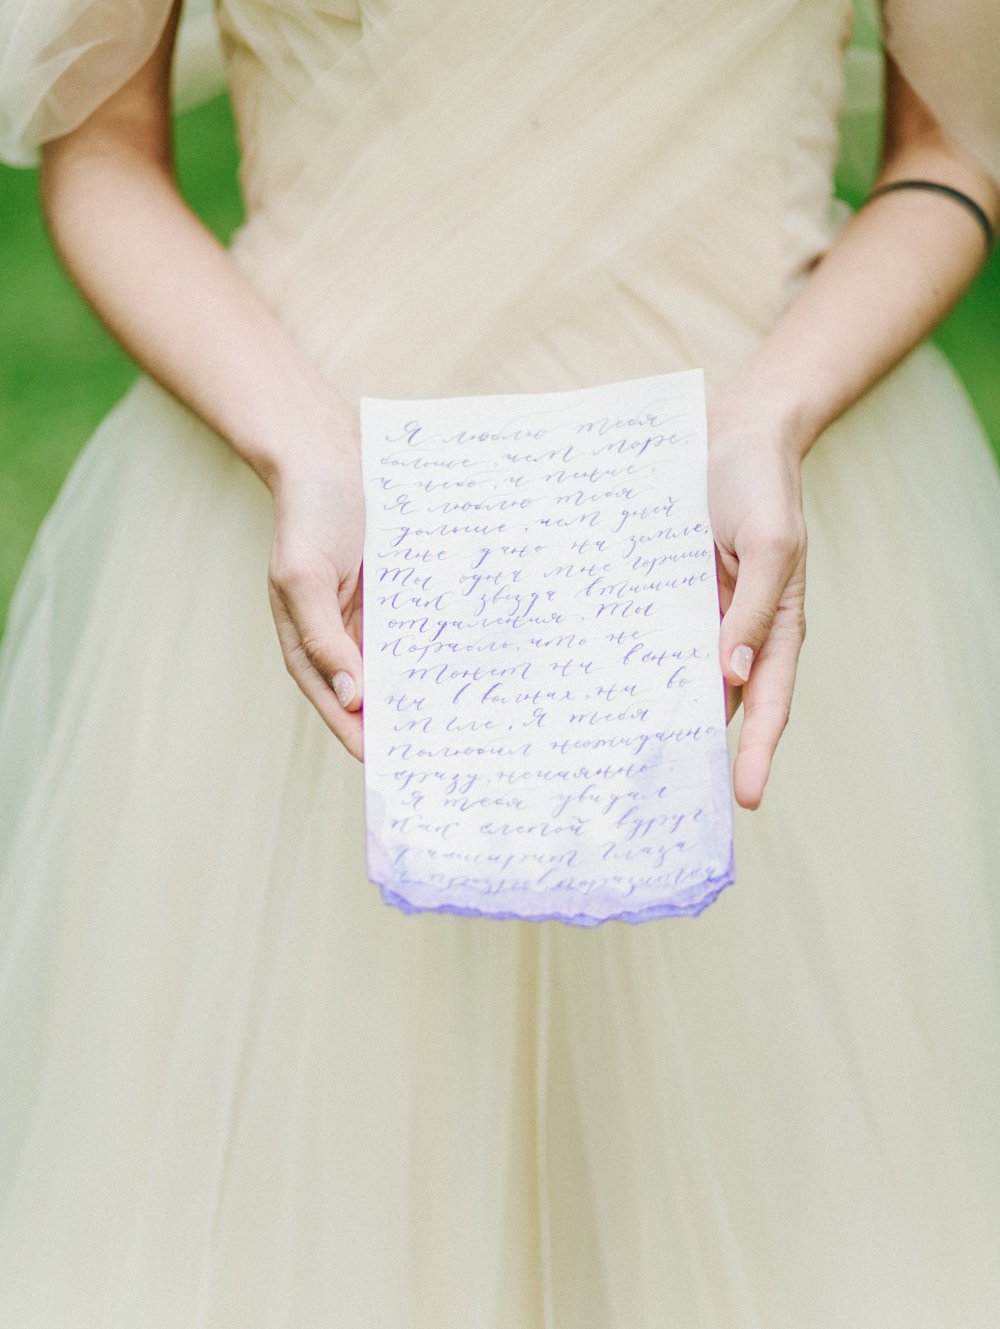 Я люблю тебя
больше, чем море,
и небо, и пение,
Я люблю тебя
дольше, чем дней
мне дано на земле.
Ты одна мне горишь,
как звезда в тишине
отдаления, Ты
корабль, что не
тонет ни в снах,
ни в волнах, ни во
мгле. Я тебя
полюбил неожиданно,
сразу, нечаянно.
Я тебя увидал
как слепой вдруг
расширит глаза
и прозрев, поразится